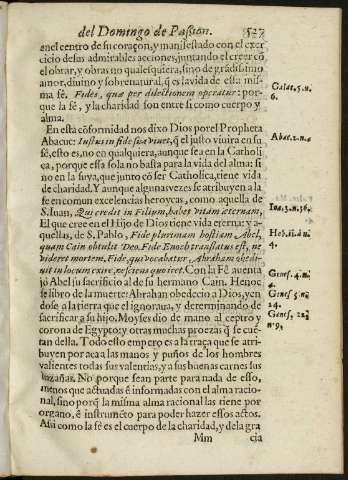 del Domingo de Passion. 527
en el centro de su coraçon, y manifestado con el exer
cicio desus admirables acciones, juntando el creer cõ
el obrar, y obras no qualesquiera, sino de grãdissimo
amor, diuino y sobrenatural, q̃ es la vida de esta mis-
ma fê. Fides, quæ per dilectionem operatur: por-
que la fê, y la charidad son entre si como cuerpo y
alma.
Galat. 5. n.
6.
En esta cõformidad nos dixo Dios por el Propheta
Abacuc: Iustus in fide sua viuet, q̃ el justo viuira en su
fê, esto es, no en qualquiera, aunque sea en la Catholi
ca, porque essa sola no basta para la vida del alma: si
no en la suya, que junto cõ ser Catholica, tiene vida
de charidad. Y aunque algunas vezes se atribuyen a la
fe en comun excelencias heroycas, como aquella de
S. Iuan, Qui credit in Filium, habet vitam æternam,
El que cree en el Hijo de Dios tiene vida eterna: y a-
quellas, de S. Pablo, Fide plurimam hostiam Abel,
quam Cain obtulit Deo. Fide Enoch translatus est, ne
videret mortem. Fide, qui vocabatur Abraham obedi-
uit in locum exire, nesciens quo iret. Con la Fê auenta
jò Abel su sacrificio al de su hermano Cain. Henoc
se libro de la muerte: Abrahan obedecio a Dios, yen
dose a la tierra que el ignoraua, y determinando de
sacrificar a su hijo. Moyses dio de mano al ceptro y
corona de Egypto: y otras muchas proezas q̃ se cuẽ-
tan della. Todo esto empero es a la traça que se atri-
buyen por aca a las manos y puños de los hombres
valientes todas sus valentias, y a sus buenas carnes sus
hazañas. No porque sean parte para nada de esso,
menos que actuadas ê informadas con el alma racio-
nal, sino porq̃ la misma alma racional las tiene por
organo, ê instrumẽto para poder hazer essos actos.
Assi como la fê es el cuerpo de la charidad, y dela gra
Abac. 2. n. 4.
Ioa. 3. n. 36.
Heb. 11. a n.
4.
Genes. 4. n.
4.
Genes. 5. n.
24.
Genes. 22
n. 9.
Mm cia